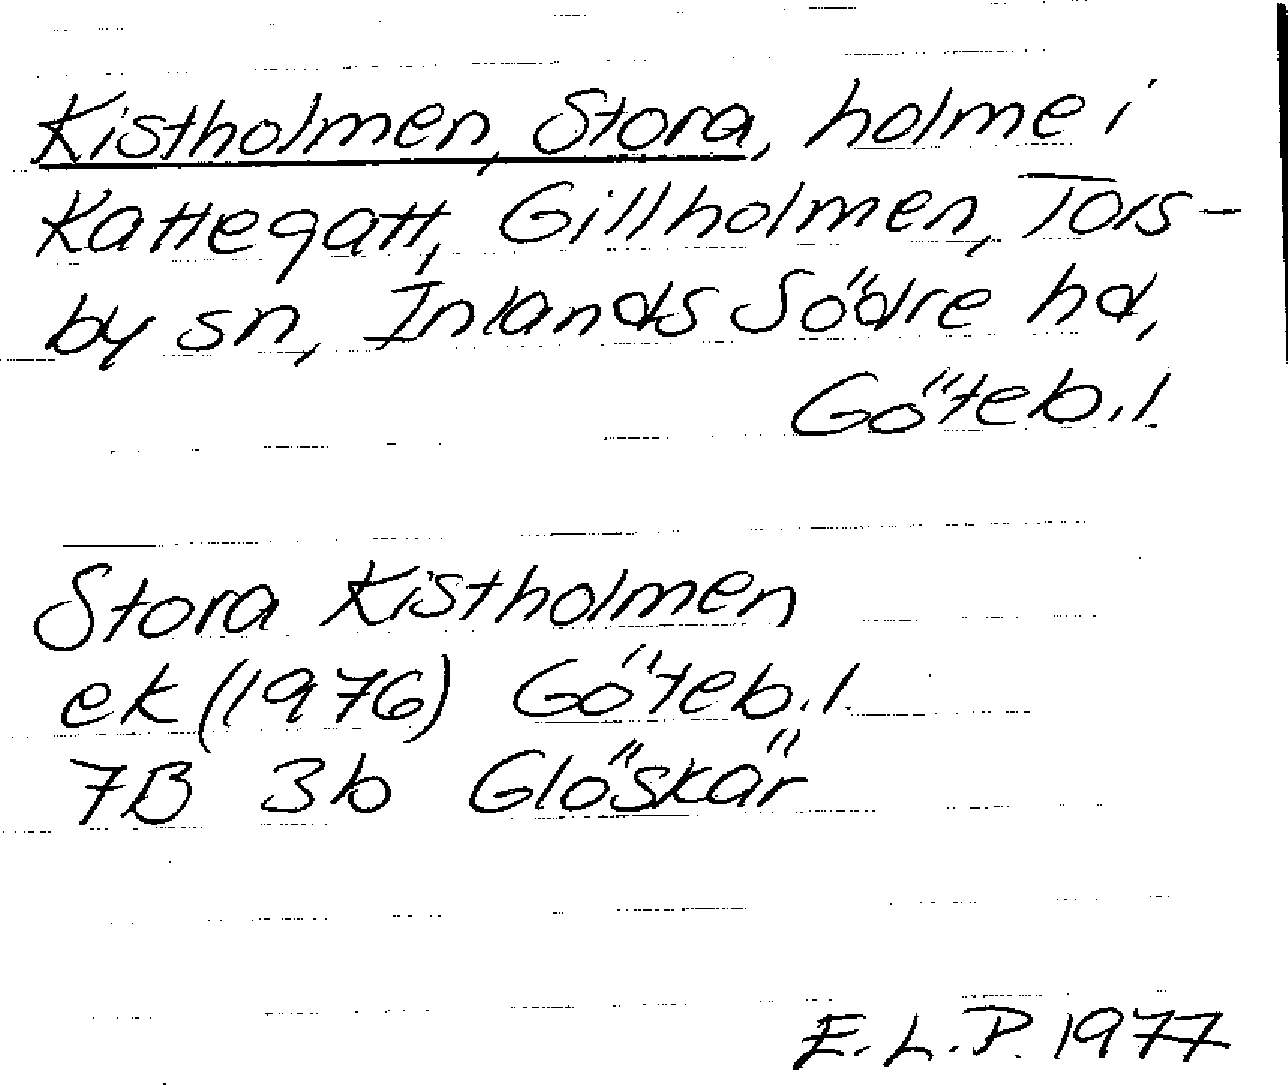 Kistholmen, Stora, holme i
Kattegatt, Gillholmen, Tors-
by sn, Inlands Södre hd,
Göteb.l.
Stora Kistholmen
ek (1976) Göteb.l.
7B 3b Glöskär
E.L.P. 1977